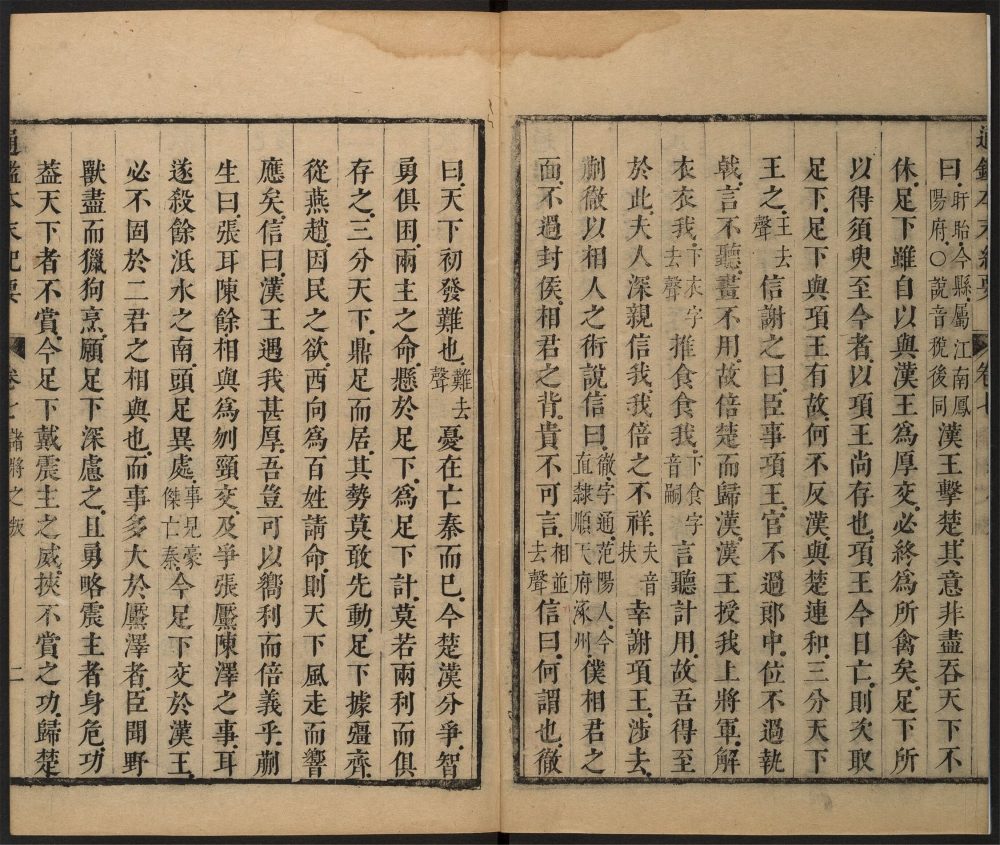 通鑑本末紀要 卷七
曰盱眙今縣屬江南鳳陽府○說音稅後同漢王擊楚其意非盡吞天下不
休足下雖自以與漢王爲厚交必終爲所禽矣足下所
以得須臾至今者以項王尚存也項王今日亡則次取
足下足下與項王有故何不反漢與楚連和三分天下
王之王去聲信謝之曰臣事項王官不過郎中位不過執
戟言不聽畫不用故倍楚而歸漢漢王授我上將軍解
衣衣我下衣字去聲推食食我下食字音嗣言聽計用故吾得至
於此夫人深親信我我倍之不祥夫音扶幸謝項王涉去
蒯徹以相人之術說信曰徹字通范陽人今直隸順天府涿州僕相君之
面不過封侯相君之背貴不可言相並去聲信曰何謂也徹
曰天下初發難也難去聲憂在亡秦而已今楚漢分爭智
勇俱困兩主之命懸於足下爲足下計莫若兩利而俱
存之三分天下鼎足而居其勢莫敢先動足下據彊齊
從燕趙因民之欲西向爲百姓請命則天下風走而響
應矣信曰漢王遇我甚厚吾豈可以嚮利而倍義乎蒯
生曰張耳陳餘相與爲刎頸交及爭張黶陳澤之事耳
遂殺餘泜水之南頭足異處事見豪傑亡秦今足下交於漢王
必不固於二君之相與也而事多大於黶澤者臣聞野
獸盡而獵狗烹願足下深慮之且勇略震主者身危功
葢天下者不賞今足下戴震主之威挾不賞之功歸楚
通鑑本末紀要 卷七 諸將之叛 二